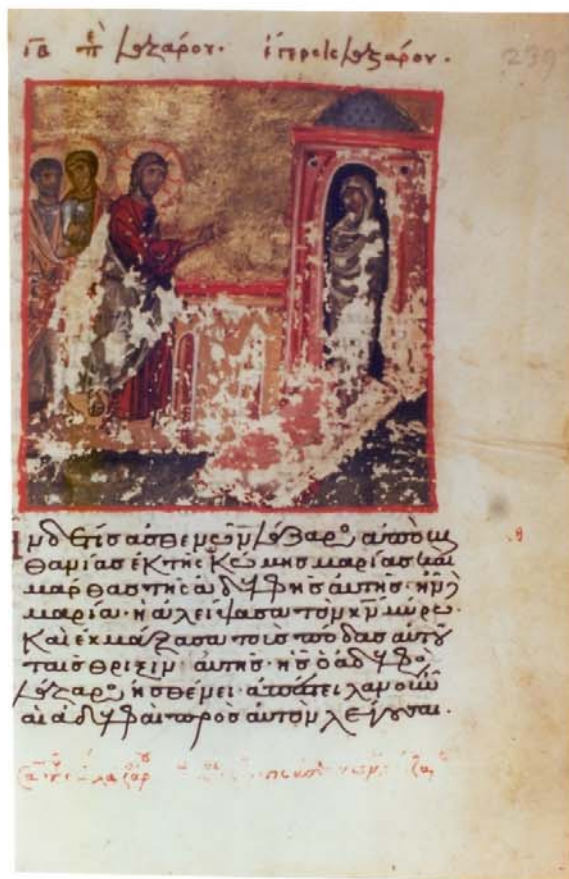 ια πε Λαζάρου. ἔγερσις Λαζάρου.
239
Ἦν δέ τις ἀσθενῶν Λάζαρος ἀπὸ βη
θανίας ἐκ τῆς κώμης μαρίας καὶ
μάρθας τῆς ἀδελφῆς αὐτῆς· ἦν δὲ
μαρία· ἡ ἀλείψασα τὸν κν μύρω·
Καὶ ἐκμάξασα τοὺς πόδας αὐτοῦ
ταῖς θριξὶν αὐτῆς· ἧς ὁ ἀδελφὸς
Λάζαρος ἠσθένει· ἀπέστειλαν οὖν
αἱ ἀδελφαὶ πρὸς αὐτὸν λέγουσαι·